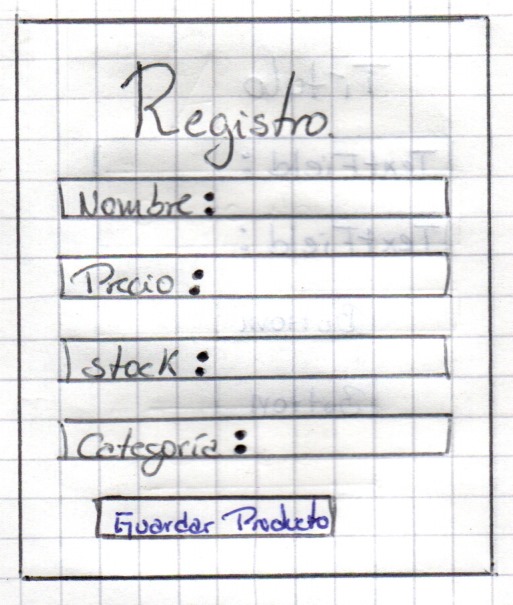 Registro.
Nombre:
Precio:
stock:
Categoría:
Guardar Producto